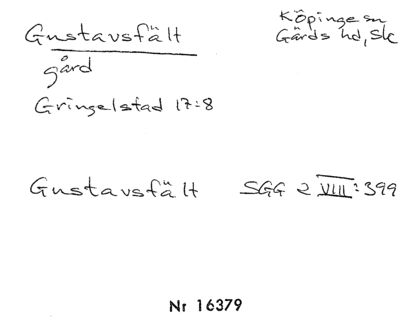 Gustavsfält
Köpinge sn
Gärds hd, Sk
gård
Gringelstad 17:8
Gustavsfält SGG 2 VIII:399
Nr 16379